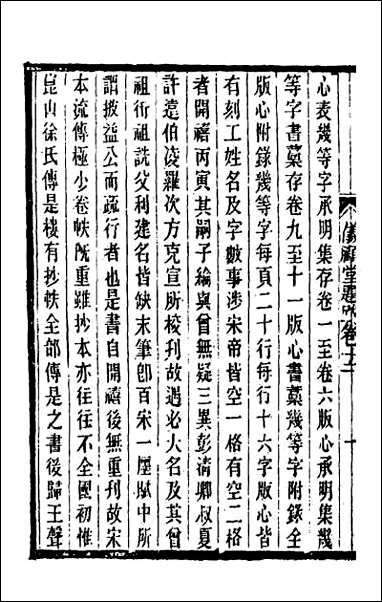 心表幾等字承明集存卷一至卷六版心承明集幾
等字書藁存卷九至十一版心書藁幾等字附錄全
版心附錄幾等字每頁二十行每行十六字版心皆
有刻工姓名及字數事涉宋帝皆空一格有空二格
者開禧丙寅其嗣子綸與曾無疑三異彭清卿叔夏
許凌羅次方克宣所校刊故遇必大名及其曾
祖衎祖詵父利建名皆缺末筆卽百宋一廛賦中所
謂披益公而疏行者也是書自開禧後無重刊故宋
本流傳極少卷帙既重雖抄本亦往往不全國初惟
崑山徐氏傳是樓有抄帙全部傳是之書後歸王聲
儀顧堂題跋卷十二
十